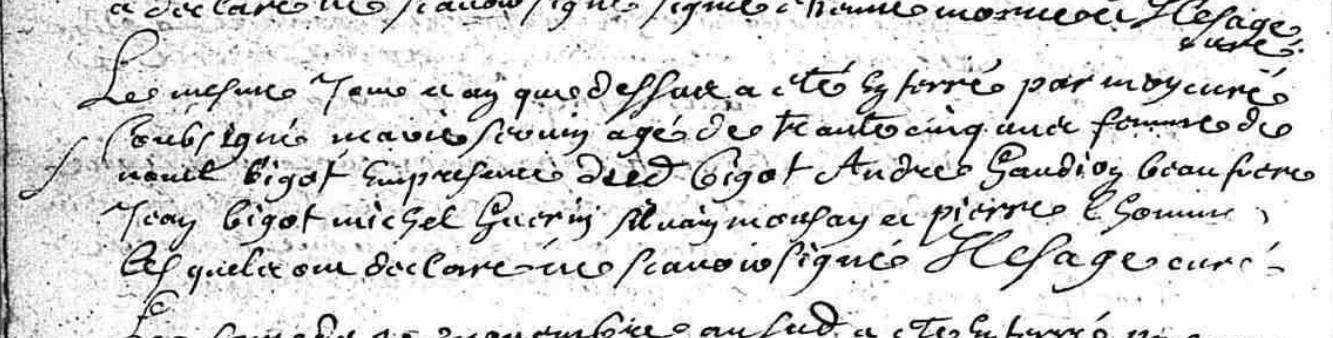 a declaré ne scavoir signé signé Estienne H Lesage
curé
Le mesme Jour et an que dessus a esté Enterré par moy curé
soubsigné marie seruin agé de trante cinq ans femme de
nouel bigot En presence dud bigot André Gaudion beau frere
Jean bigot michel Guerin Siluain monsay et pierre Lhomme
Lesquels ont declaré ne scauoir signé H Lesage curé
a esté Enterré